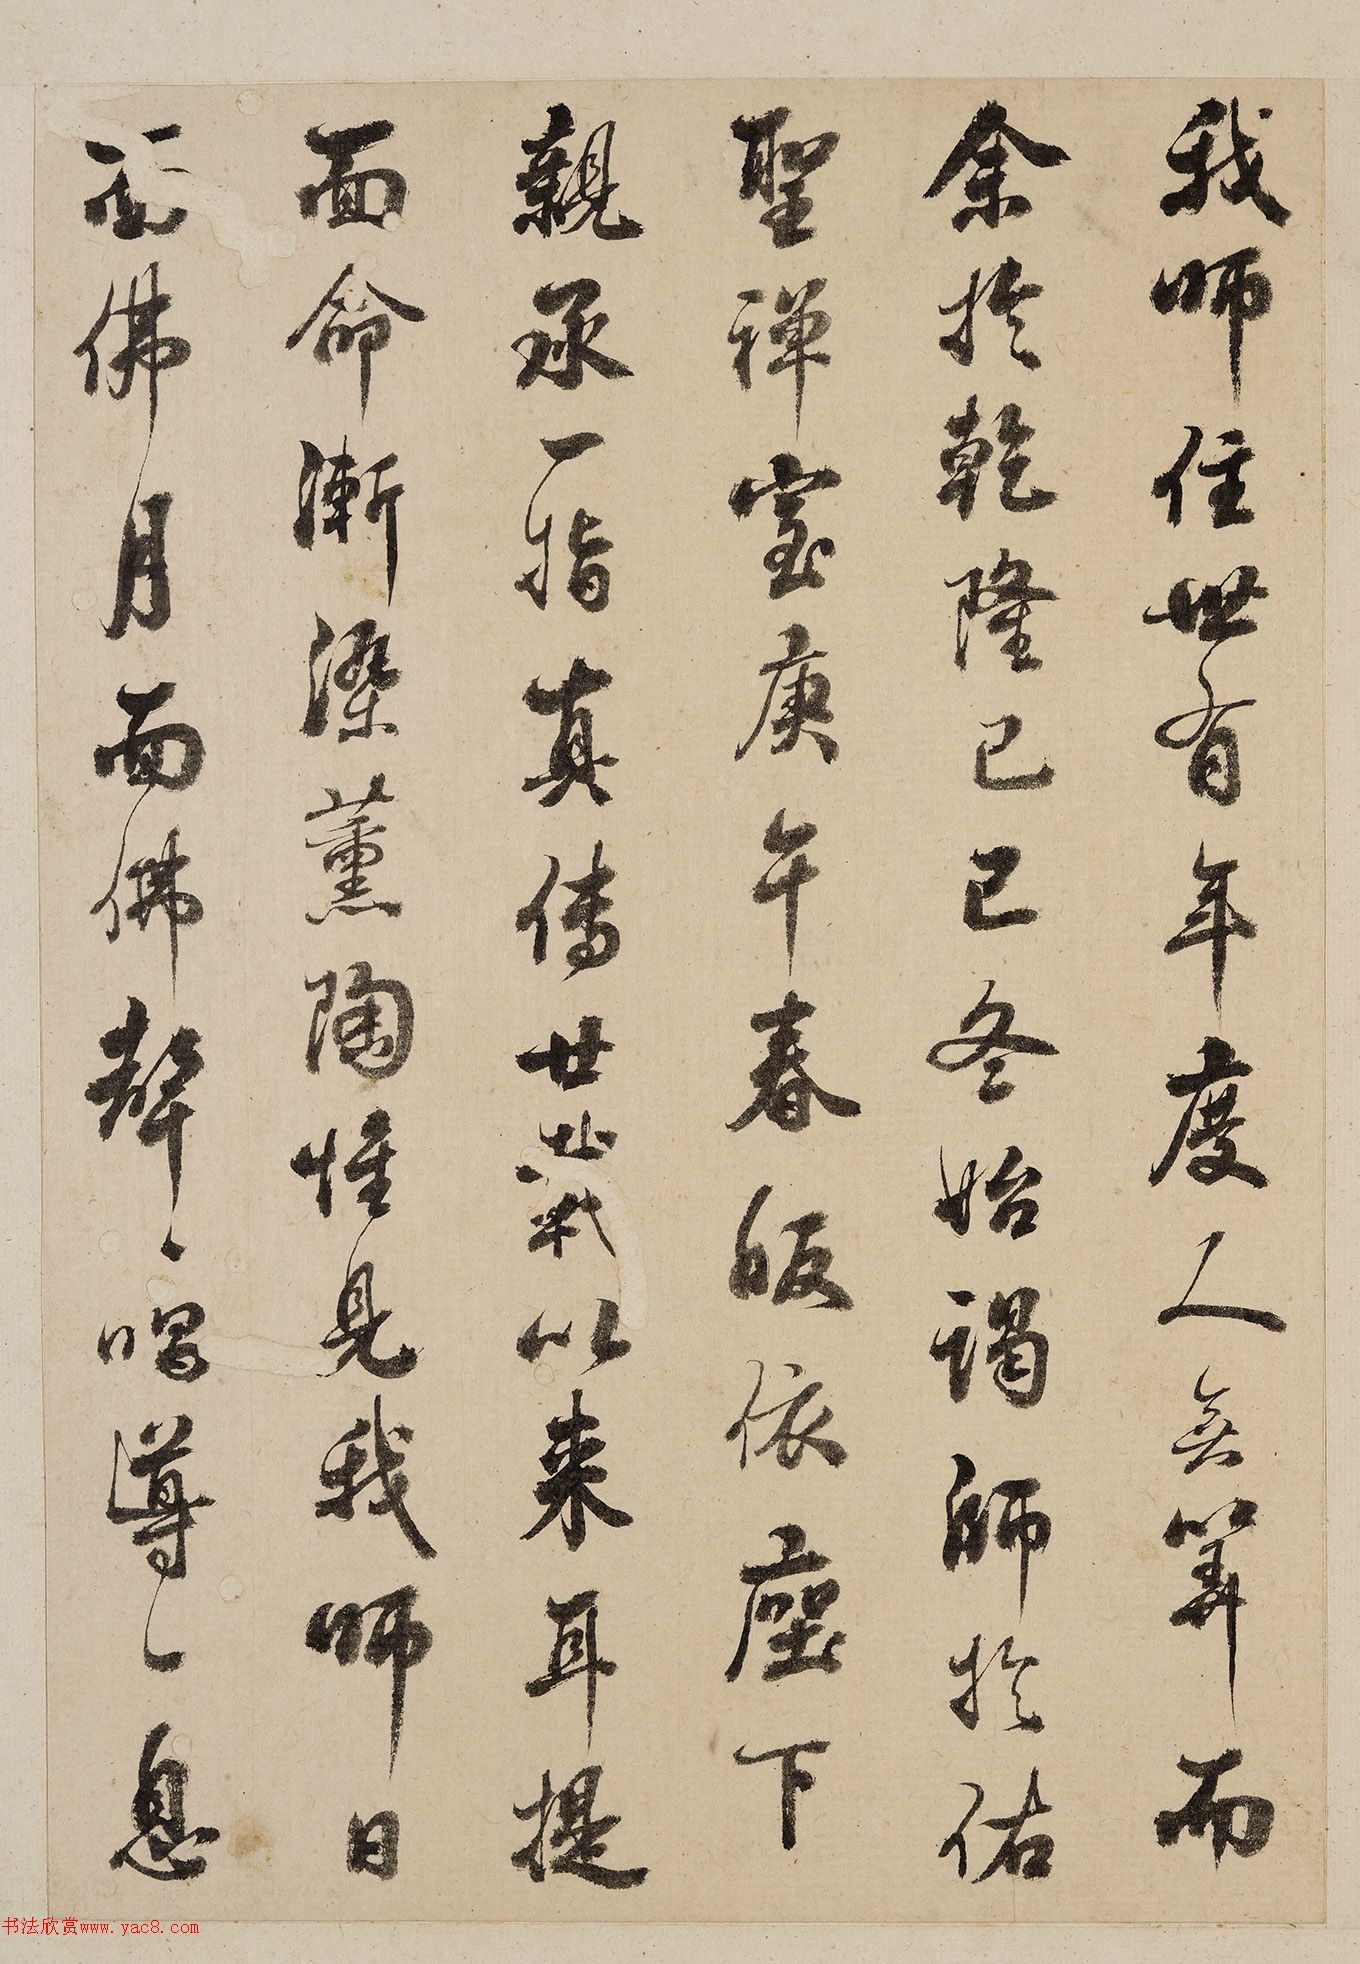 我師住世有年度人無筭而
余於乾隆己巳冬始謁師於佑
聖禅室庚午春皈依座下
親承一指真傳廿載以来耳提
面命漸染薰陶惟見我師日
面佛月面佛聲、唱導、息
书法欣赏www.yac8.com